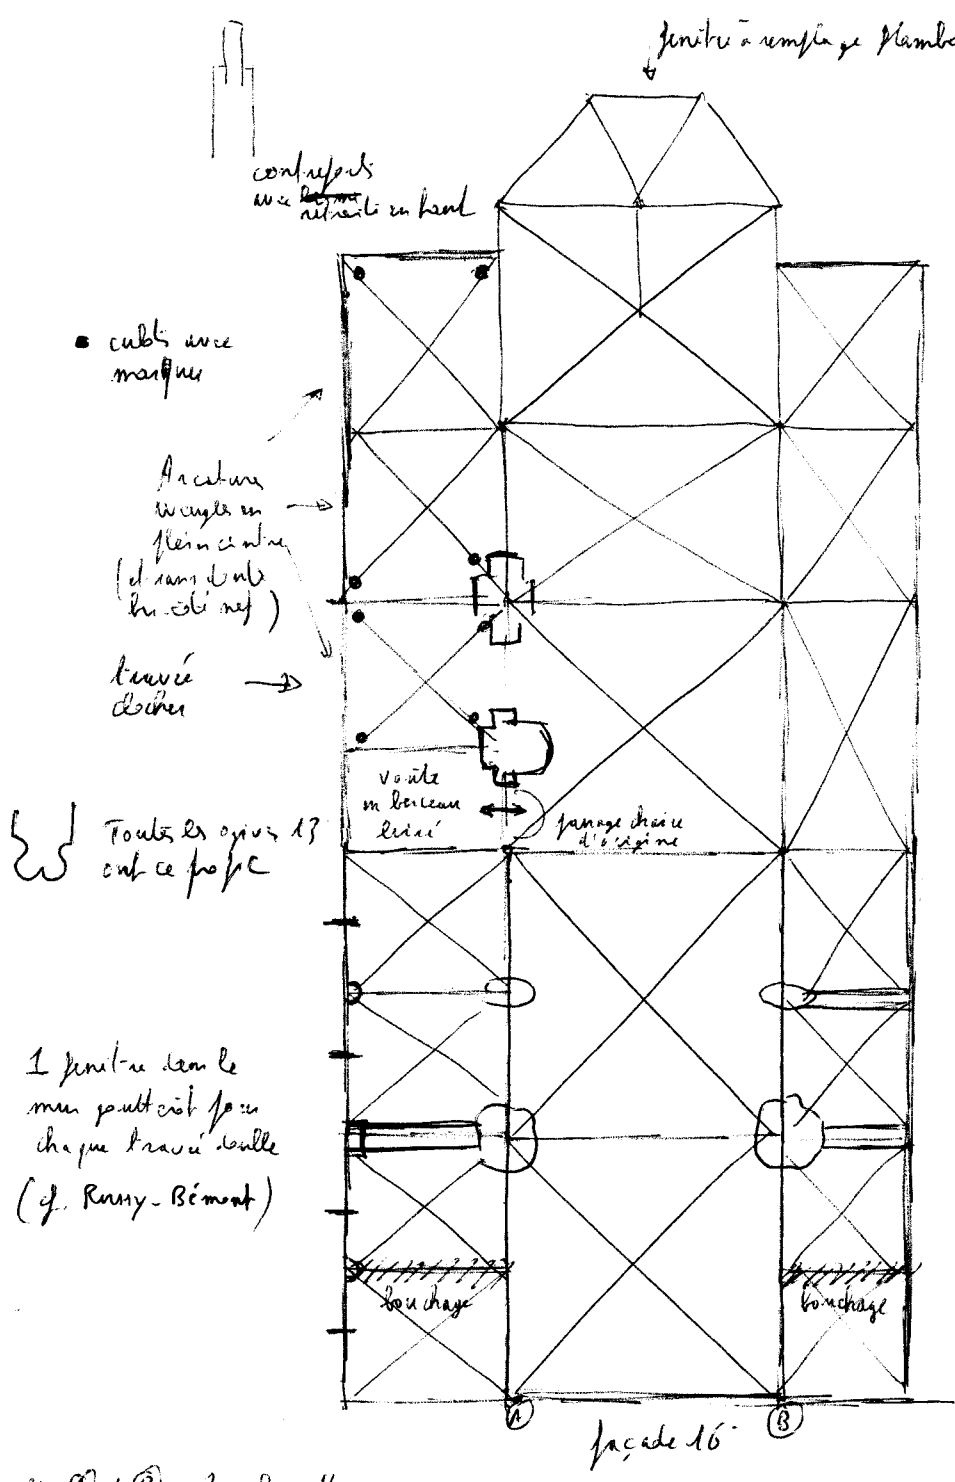 fenêtre à remplage flambo
contreforts
avec retraite en haut
culots avec
marques
Arcatures
aveugles en
plein cintre
(et sans doute
bas-côté nef)
travée
clocher
voûte
en berceau
brisé
passage chaire
d'origine
Toutes les ogives 13
ont ce profil
1 fenêtre dans le
mur gouttereau pour
chaque travée double
(cf. Russy-Bémont)
bouchage
bouchage
A
B
façade 16